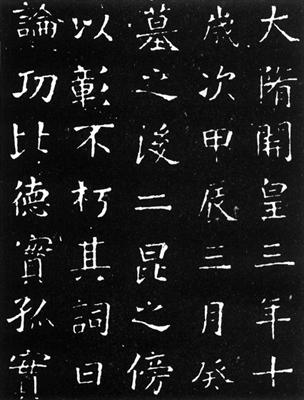 大隋開皇三年十
歲次甲辰三月癸
墓之後二昆之傍
以彰不朽其詞曰
論功比德實孤實